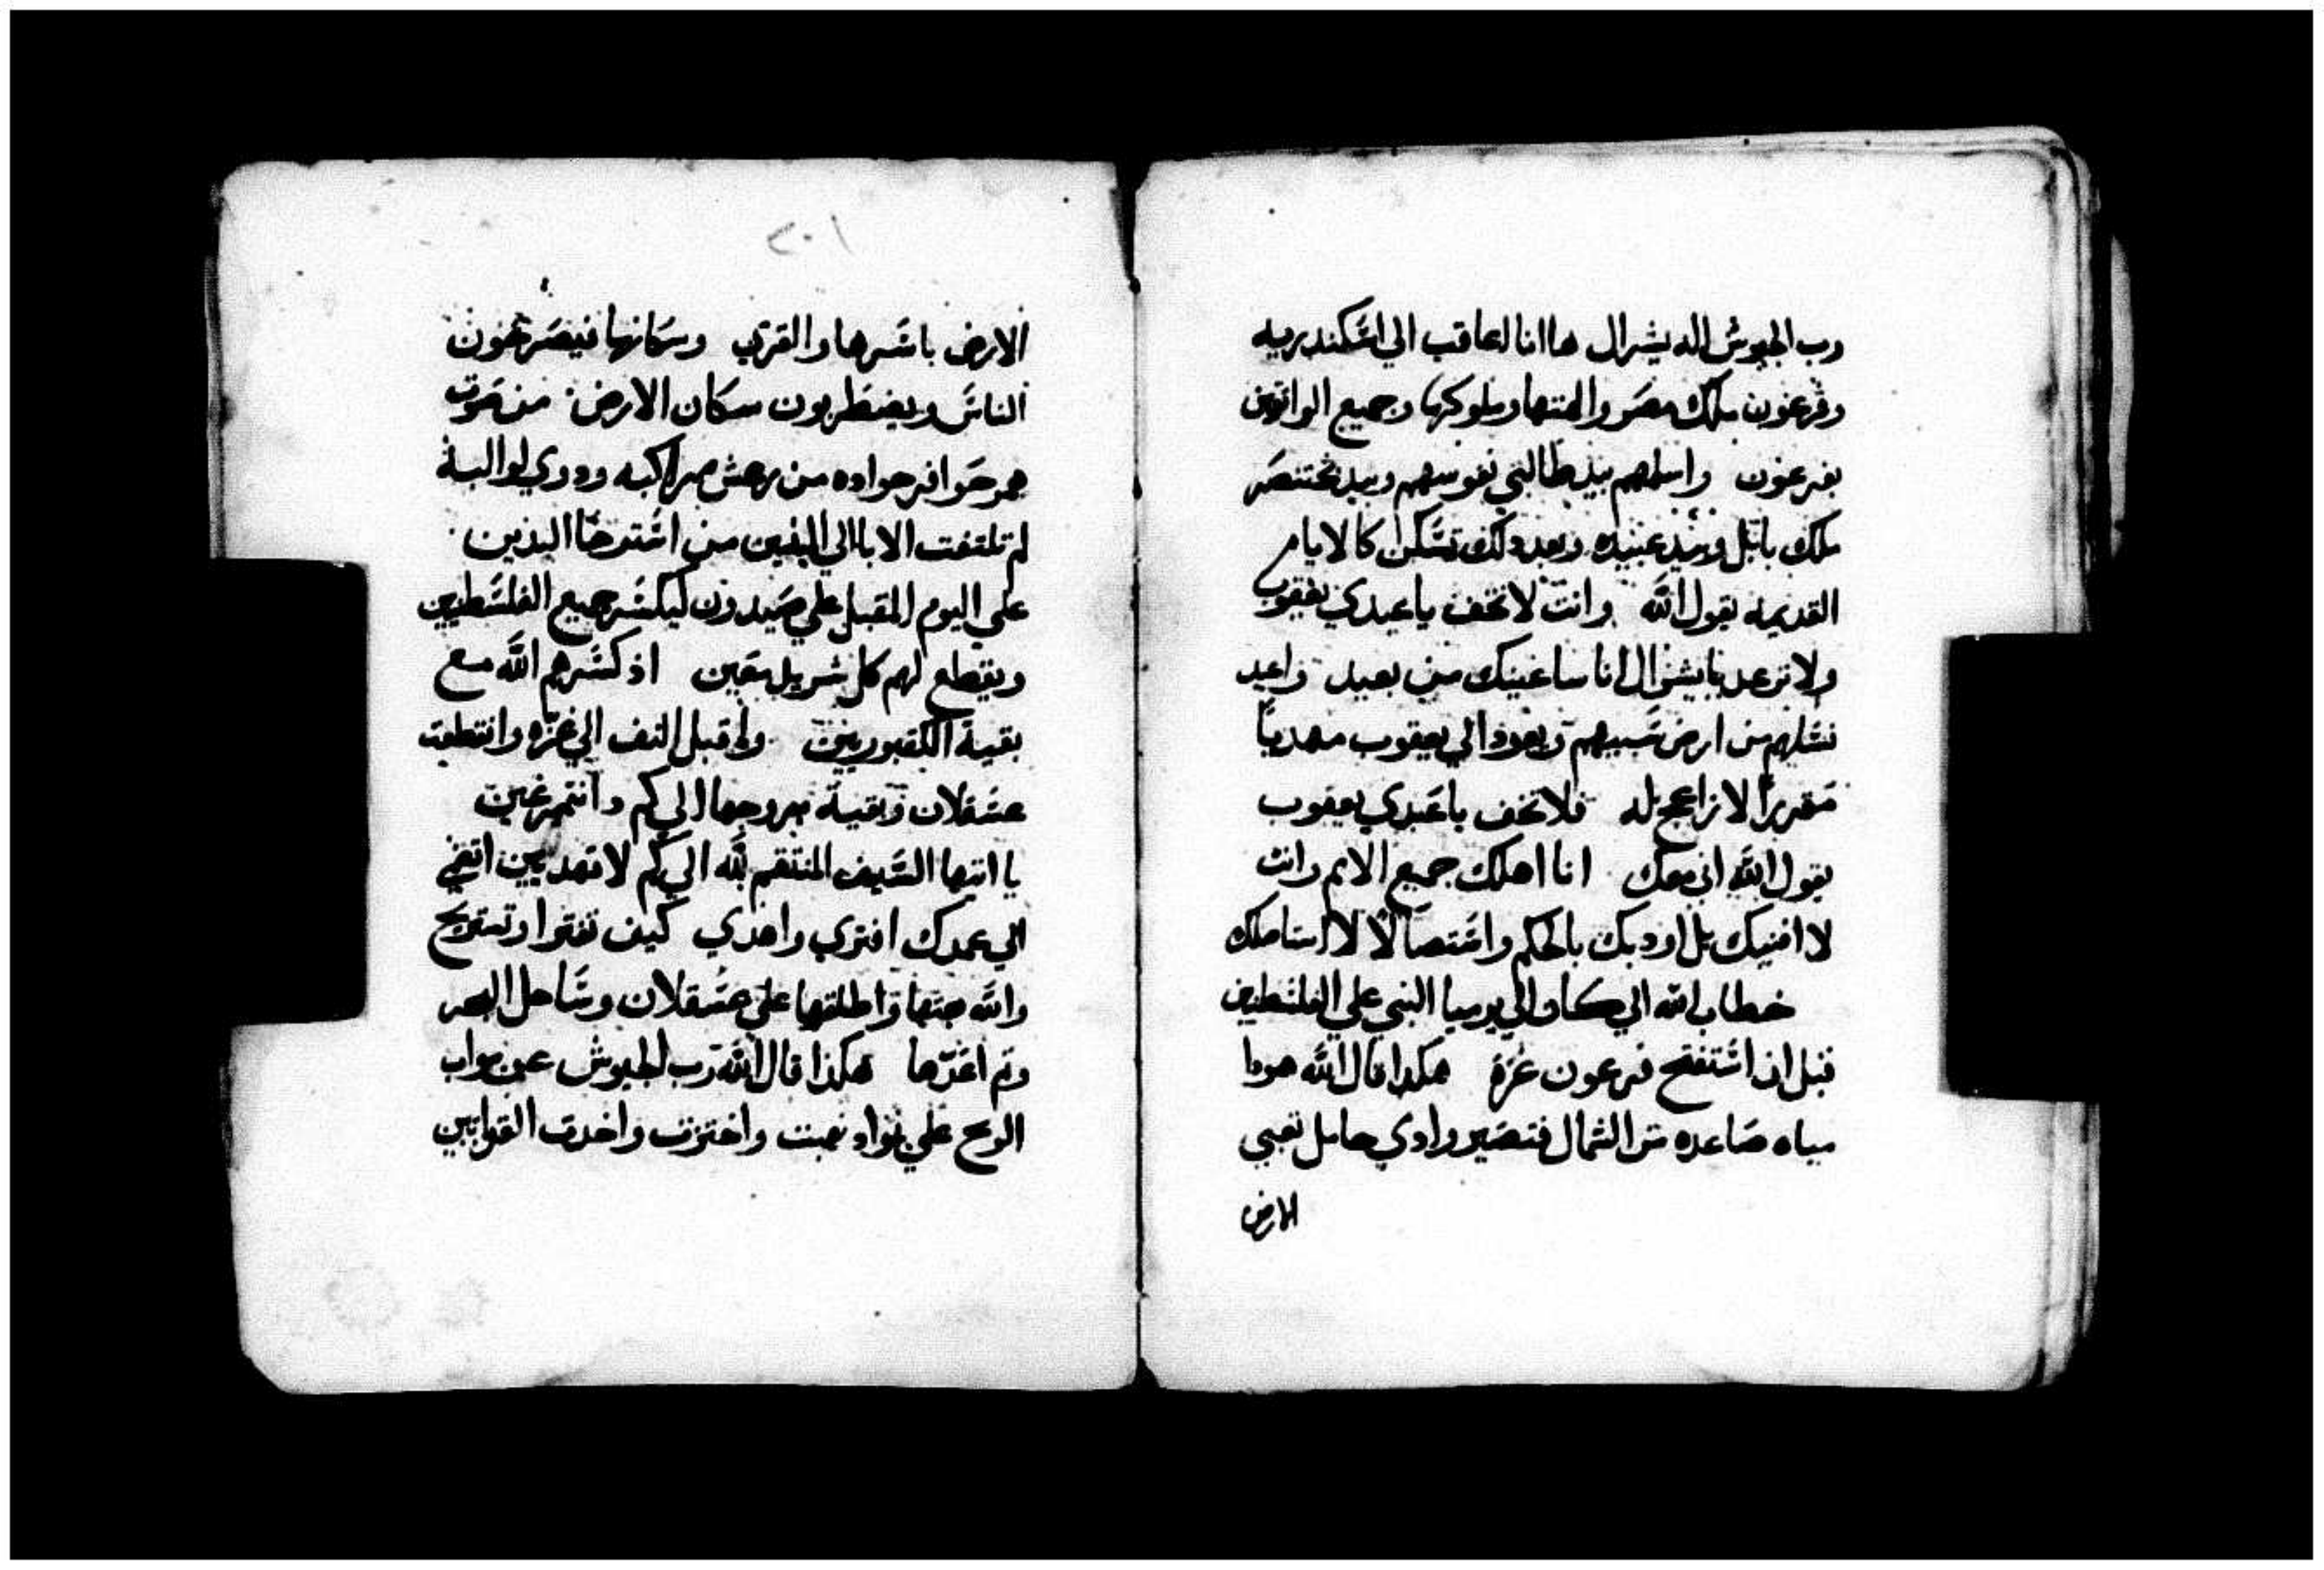 رب الجيوش اله يشرال هاانا لعاقب الي اسكندريه
وفرعون ملك مصر والهتها وملوكها وجميع الواثقين
بفرعون واسلمهم بيد طالبي نفوسهم وبيد بختنصر
ملك بابل وبيد عبيده وبعد دلك تسكن كالايام
القديمه يقول الله وانت لا تخف ياعبدي يعقوب
ولا ترعد يايشرال انا ساغيثك من بعيد واعيد
نسلهم من ارض سبيهم ويعود الي يعقوب مهديا
مقررا لا نزاعج له فلا تخف ياعبدي يعقوب
يقول الله اني معك انا اهلك جميع الامم وانت
لا افنيك بل اودبك بالحكم واستصالا لا استاصلك
خطاب الله الي كان الي يرميا النبي علي الفلسطين
قبل ان استفتح فرعون غزة هكدا قال الله هودا
مياه صاعده من الشمال فتصير وادي حامل تعبي
الارض
٢٠١
الارض باسرها والقري وسكانها فيصرخون
الناس ويضطربون سكان الارض من صوت
حوافر جواده من رهش مراكبه ودوي لوالبة
لم تلتفت الابا الي البنين من استرخا اليدين
علي اليوم المقبل علي صيدون ليكسر جميع الفلسطين
ويقطع لهم كل شريد معين اذ كسرهم الله مع
بقية القبوريين ولم قبل النف الي غزه وانقطعت
عسقلان وبقية مروجها الي كم وانتم
يا ايتها السيف المنتقم لله الي كم لا تهديين
الي عمدك افتري واهدي كيف تفتوا وتستريح
والله حثها واطلقها علي عسقلان وساحل البحر
وتم اعدها هكذا قال الله رب الجيوش عين مواب
الوح علي نواد نهبت واخترت واخدت القوايتين